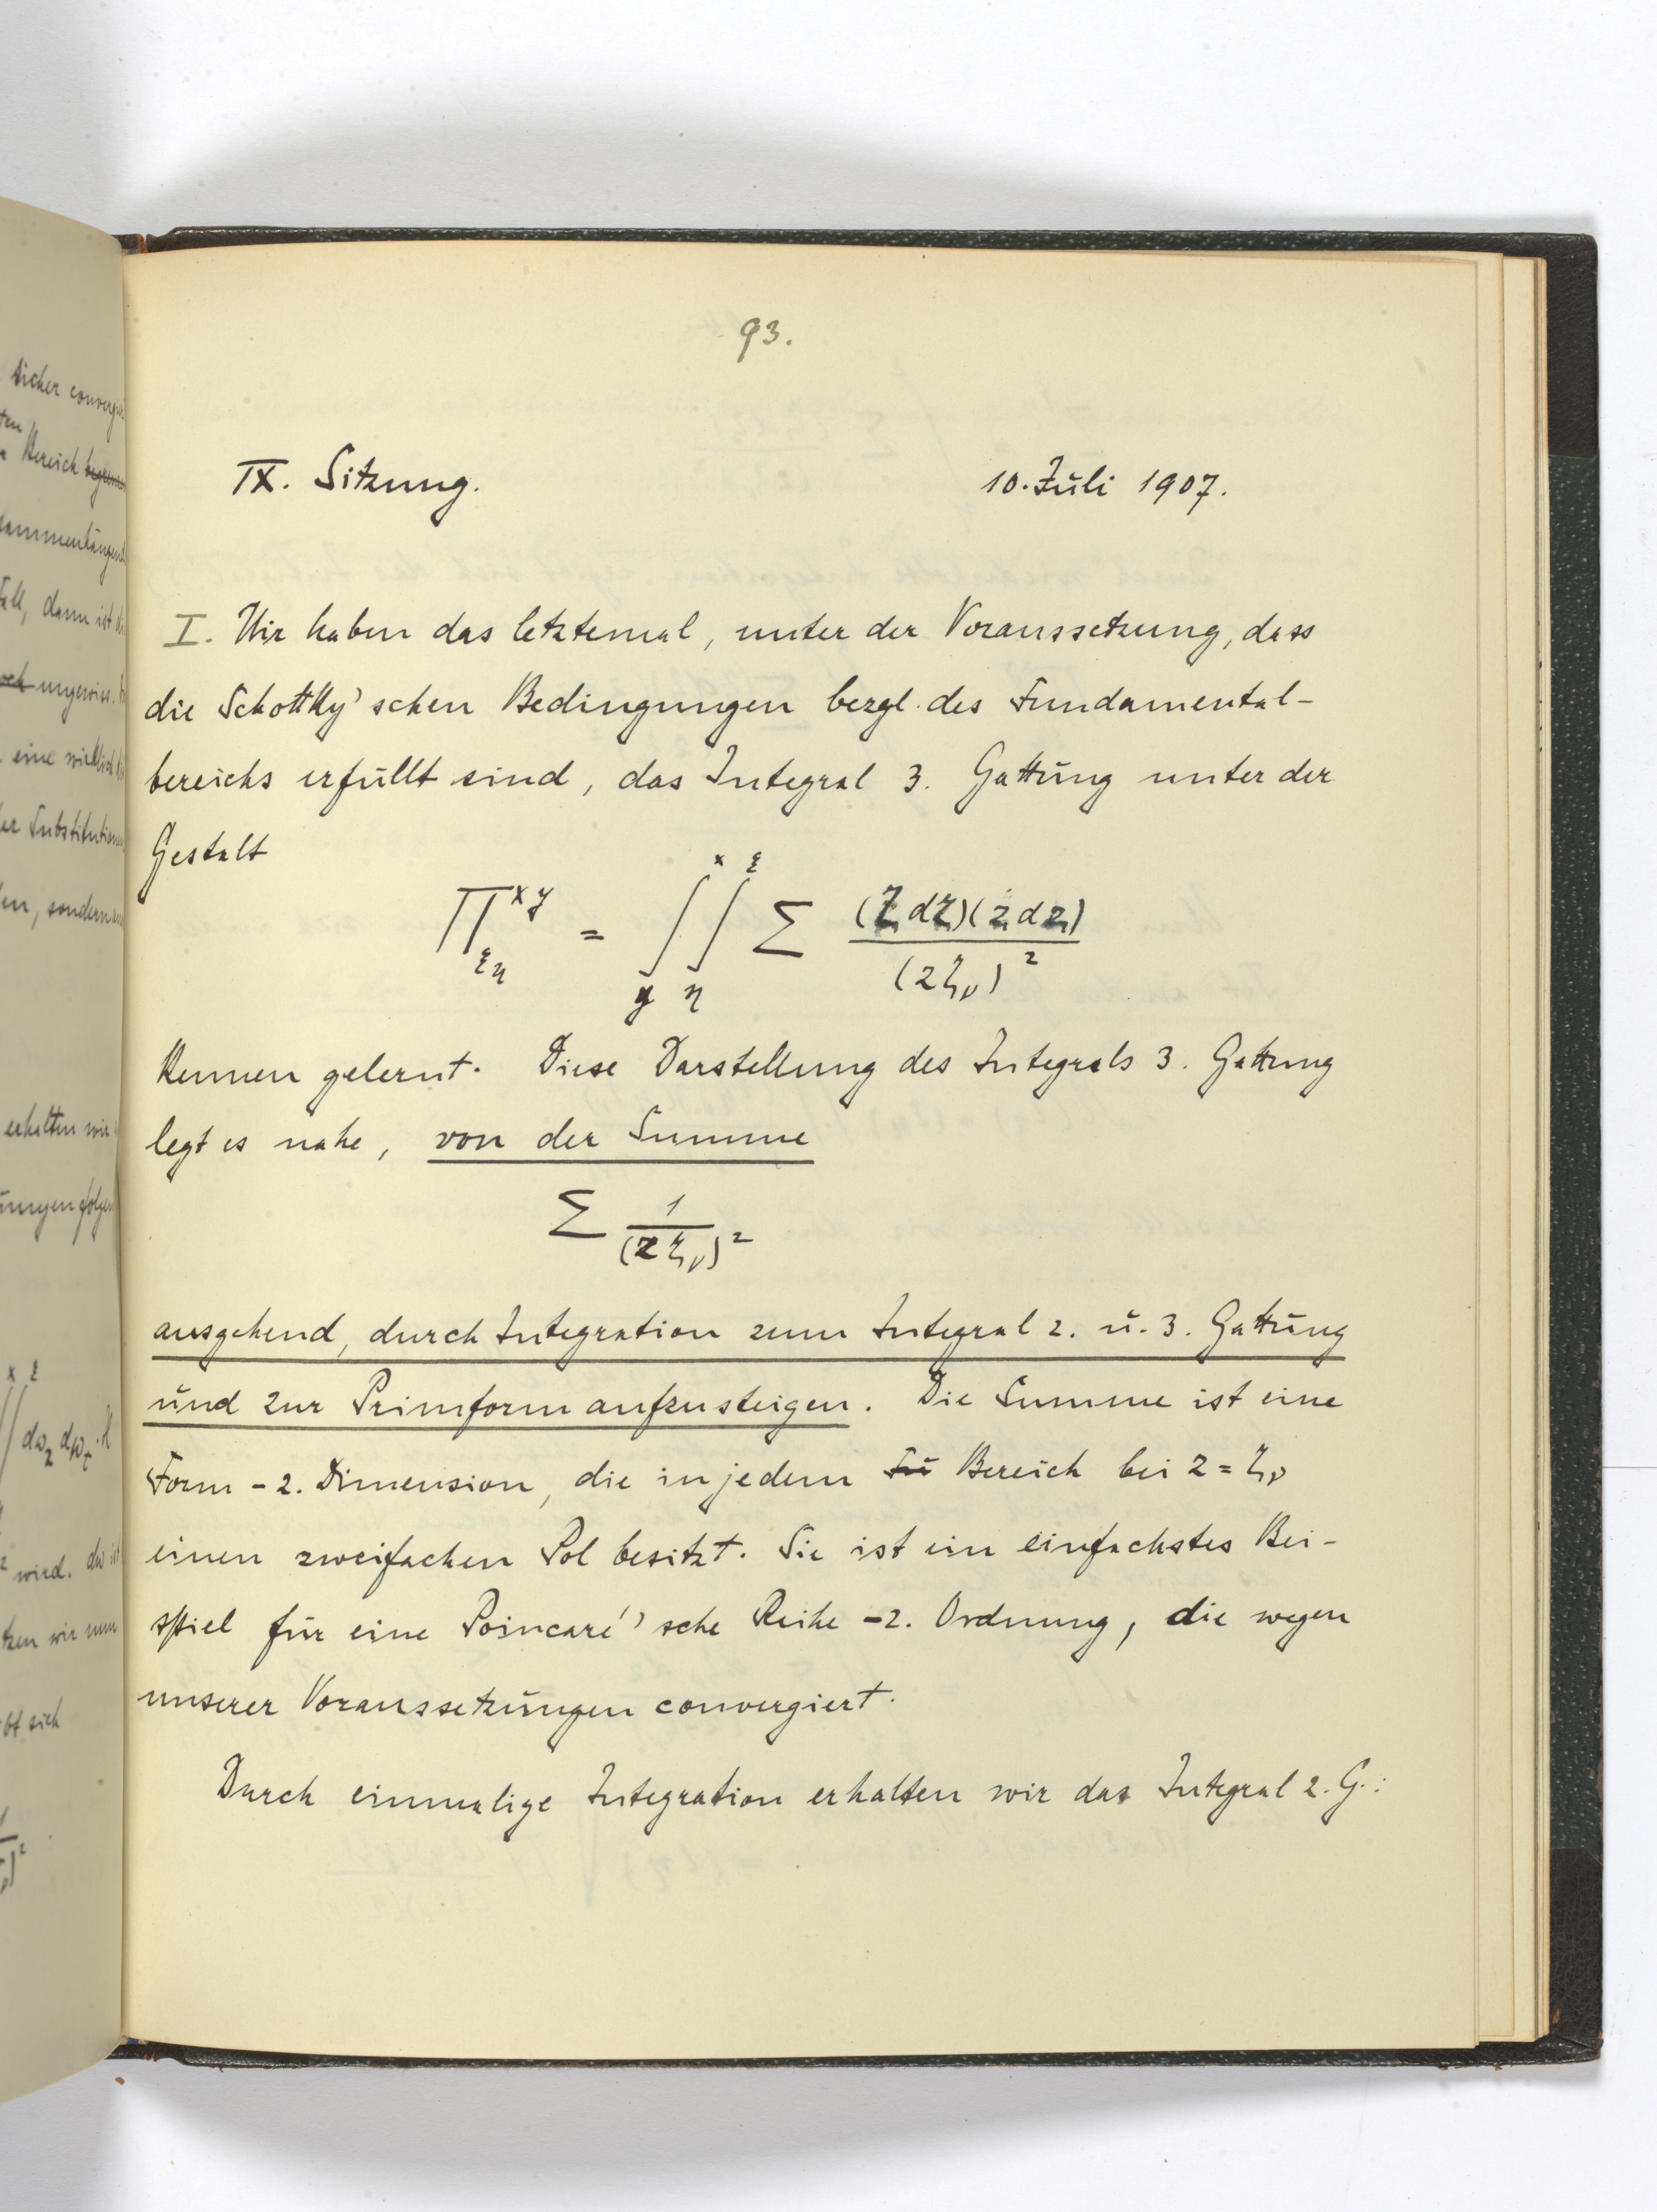 93.
IX. Sitzung. 10. Juli 1907.
I. Wir haben das letztemal, unter der Voraussetzung, dass
die Schottky'schen Bedingungen bezgl. des Fundamental-
bereichs erfüllt sind, das Integral 3. Gattung unter der
Gestalt
∏^{xy}_{ξη} = ∫_y^x ∫_η^ξ Σ (ζdζ)(zdz) / (zζ_ν)²
kennen gelernt. Diese Darstellung des Integrals 3. Gattung
legt es nahe, von der Summe
Σ 1/(zζ_ν)²
ausgehend, durch Integration zum Integral 2. u. 3. Gattung
und zur Primform aufzusteigen. Die Summe ist eine
Form -2. Dimension, die in jedem Bereich bei z = ζ_ν
einen zweifachen Pol besitzt. Sie ist ein einfachstes Bei-
spiel für eine Poincaré'sche Reihe -2. Ordnung, die wegen
unserer Voraussetzungen convergiert.
Durch einmalige Integration erhalten wir das Integral 2. G.:
sicher
Bereich
Fall, dann ist
eine
der
sondern
erhalten wir
∫∫ dω_z dω_ζ
wird.
wir nun
sich